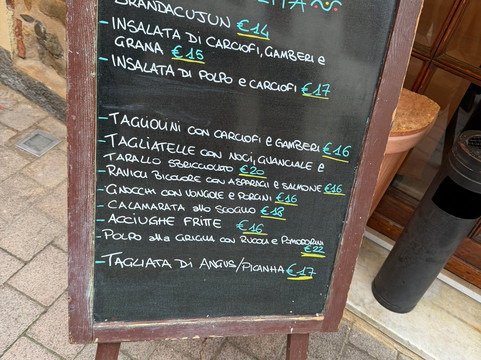 BRANDACUJUN €14
- INSALATA DI CARCIOFI, GAMBERI e
GRANA €15
- INSALATA DI POLPO e CARCIOFI €17
- TAGLIOLINI CON CARCIOFI e GAMBERI €16
- TAGLIATELLE CON NOCI, GUANCIALE e
TARALLO SBRICIOLATO €20
- RAVIOLI BICOLORE CON ASPARAGI e SALMONE €16
- GNOCCHI CON VONGOLE e PORCINI €16
- CALAMARATA allo SCOGLIO €18
- ACCIUGHE FRITTE €16
- POLPO alla GRIGLIA CON RUCOLA e POMODORINI
€22
- TAGLIATA DI ANGUS/PICANHA €17